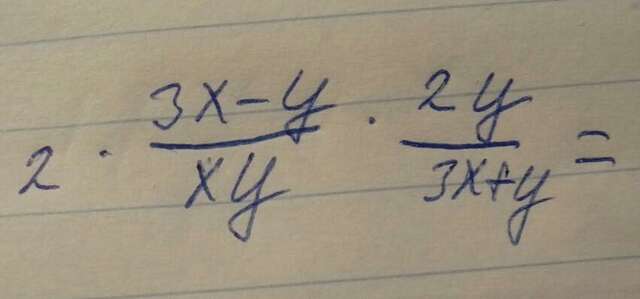 2 · \frac{3x-y}{xy} · \frac{2y}{3x+y} =